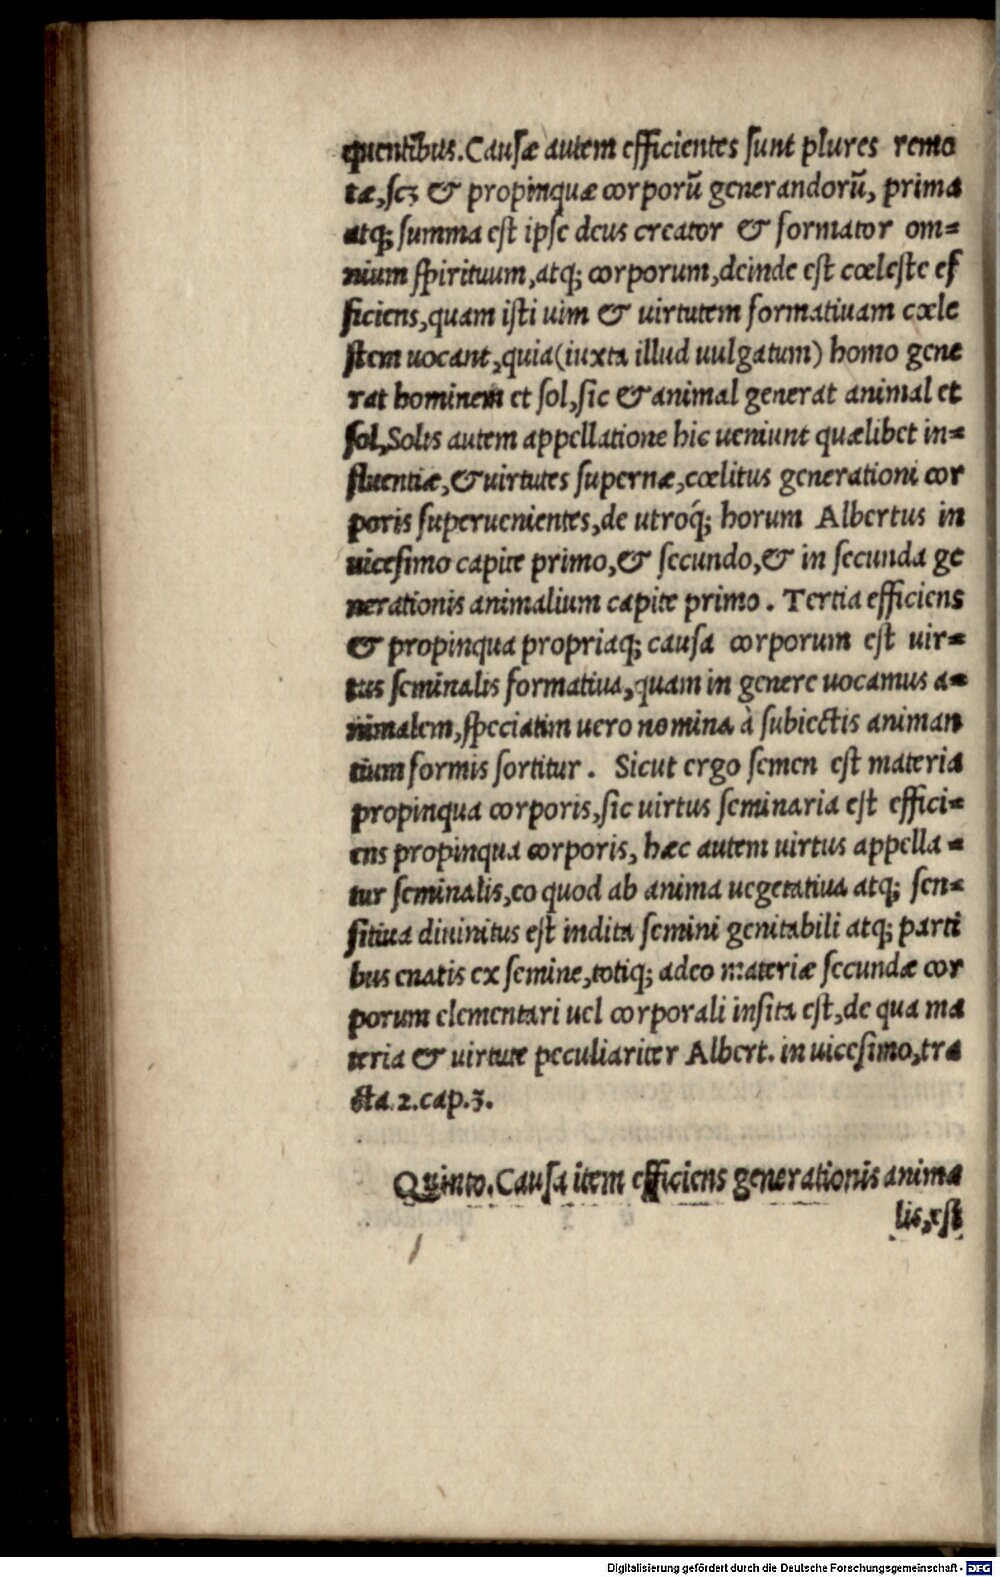 quentibus. Causæ autem efficientes sunt plures remo
tæ, scz & propinquæ corporū generandorū, prima
atq; summa est ipse deus creator & formator om=
nium spirituum, atq; corporum, deinde est cœleste ef
ficiens, quam isti uim & uirtutem formatiuam cœle
stem uocant, quia (iuxta illud uulgatum) homo gene
rat hominem et sol, sic & animal generat animal et
sol, Solis autem appellatione hic ueniunt quælibet in=
fluentiæ, & uirtutes supernæ, cœlitus generationi cor
poris superuenientes, de utroq́; horum Albertus in
uicesimo capite primo, & secundo, & in secunda ge
nerationis animalium capite primo. Tertia efficiens
& propinqua propriaq; causa corporum est uir=
tus seminalis formatiua, quam in genere uocamus a=
nimalem, speciatim uero nomina à subiectis animan
tium formis sortitur. Sicut ergo semen est materia
propinqua corporis, sic uirtus seminaria est effici=
ens propinqua corporis, hæc autem uirtus appella=
tur seminalis, eo quod ab anima uegetatiua atq; sen=
sitiua diuinitus est indita semini genitabili atq; parti
bus enatis ex semine, totiq; adeo materiæ secundæ cor
porum elementari uel corporali insita est, de qua ma
teria & uirtute peculiariter Albert. in uicesimo, tra
cta. 2. cap. 3.
Quinto. Causa item efficiens generationis anima
lis, est
Digitalisierung gefördert durch die Deutsche Forschungsgemeinschaft - DFG